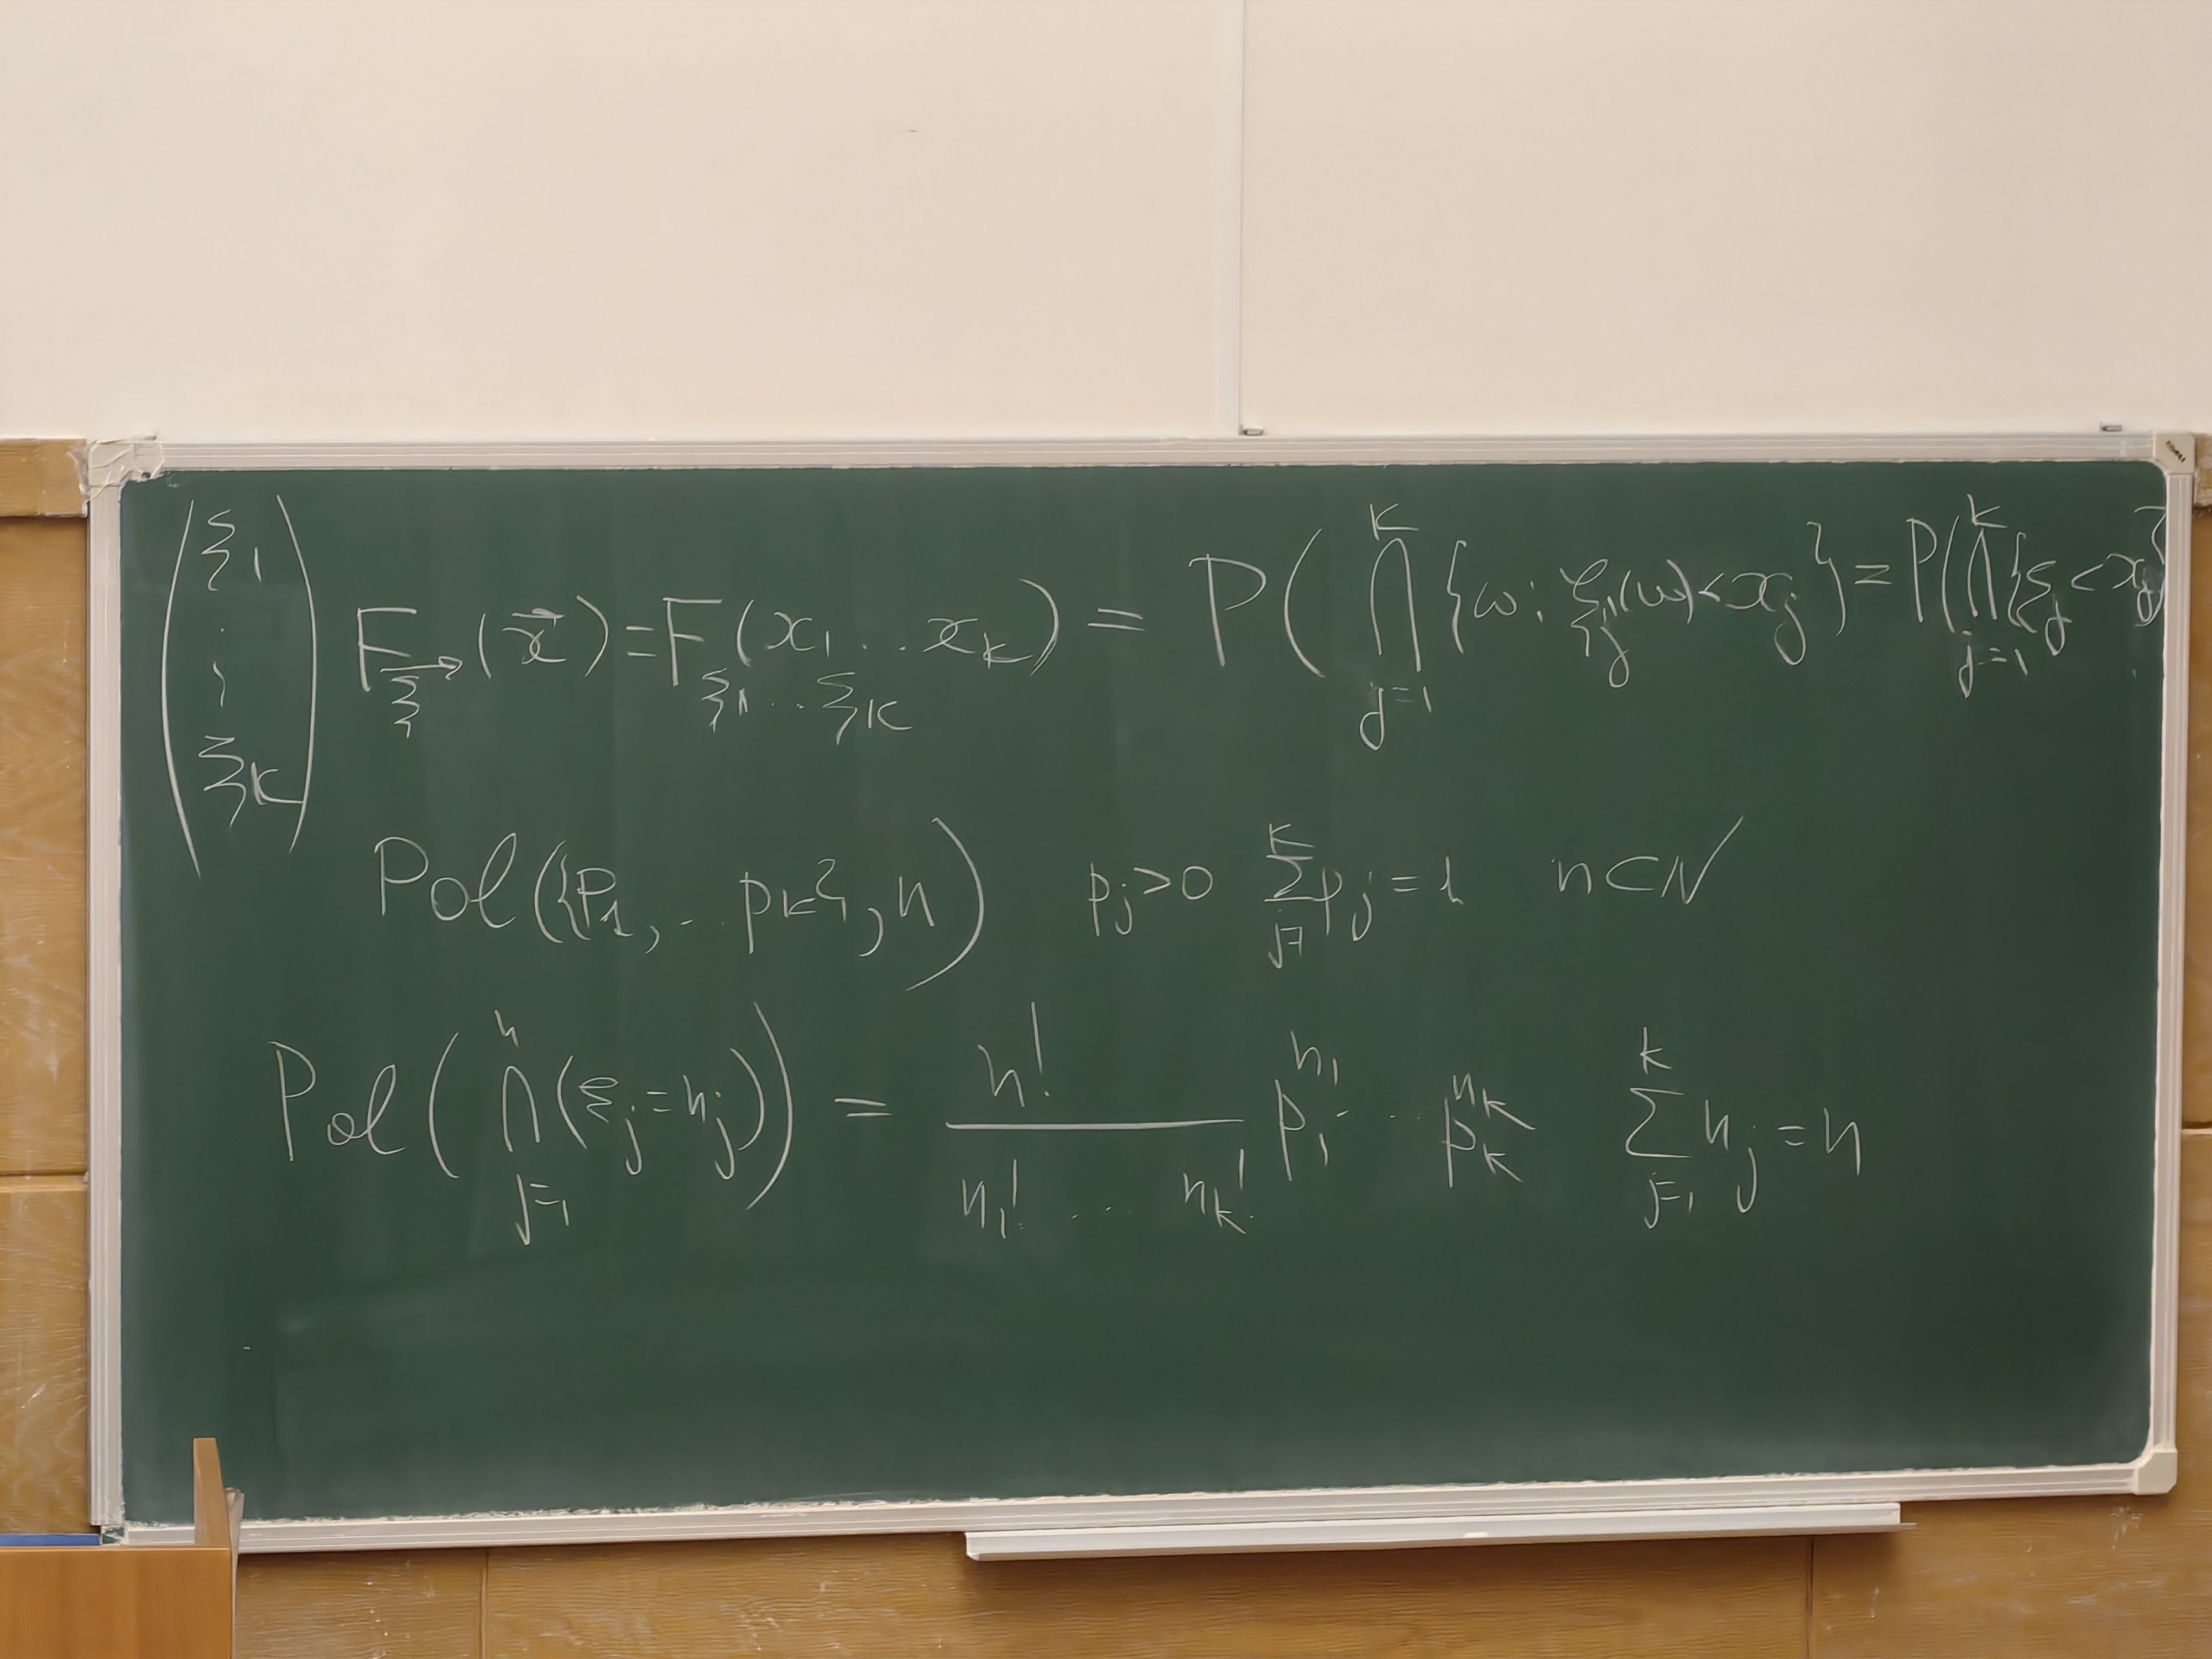 (ξ₁ ⋮ ξₖ) F_ξ⃗ (x⃗) = F_ξ₁...ξₖ (x₁...xₖ) = P(⋂_{j=1}^{k} {ω: ξⱼ(ω)<xⱼ}) = P(⋂_{j=1}^{k} {ξⱼ<xⱼ}
Pol({p₁,...pₖ}, n) pⱼ>0 ∑_{j=1}^{k} pⱼ=1 n⊂N
Pol(⋂_{j=1}^{n} (ξⱼ=nⱼ)) = n!/(n₁!...nₖ!) p₁^{n₁}...pₖ^{nₖ} ∑_{j=1}^{k} nⱼ=n